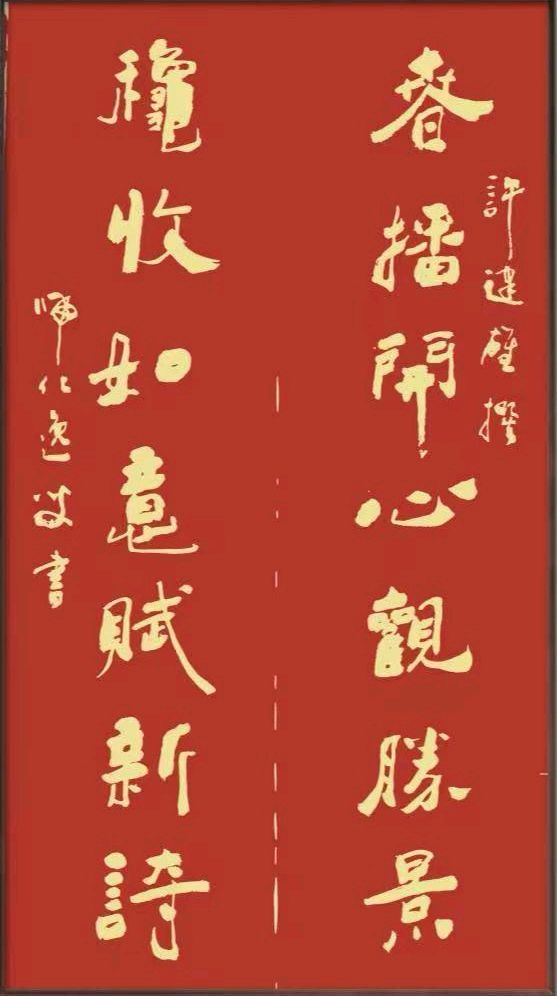 許建雄撰
春播開心觀勝景
穐收如意賦新詩
師逸叟書